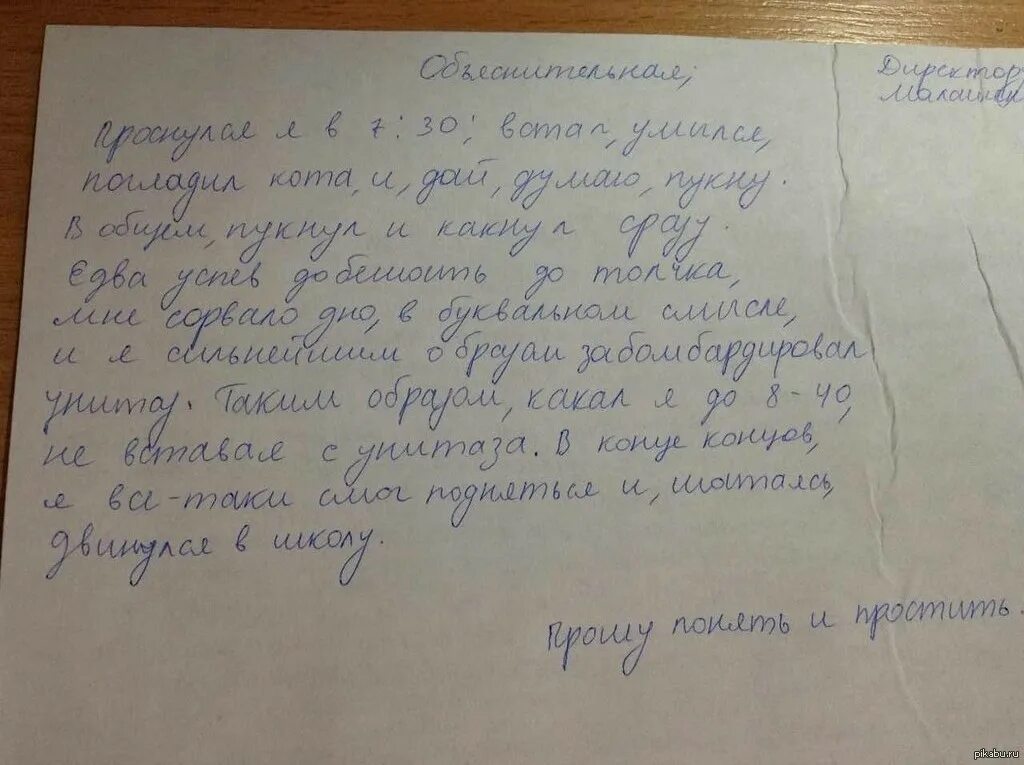 Объяснительная;
Директору
Проснулся я в 7:30; встал, умылся,
погладил кота, и, дай, думаю, пукну.
В общем, пукнул и какнул сразу.
Едва успев добежать до толчка,
мне сорвало дно, в буквальном смысле,
и я сильнейшим образом забомбардировал
унитаз. Таким образом, какал я до 8-40,
не вставая с унитаза. В конце концов,
я все-таки смог подняться и, шатаясь,
двинулся в школу.
Прошу понять и простить.
pikabu.ru